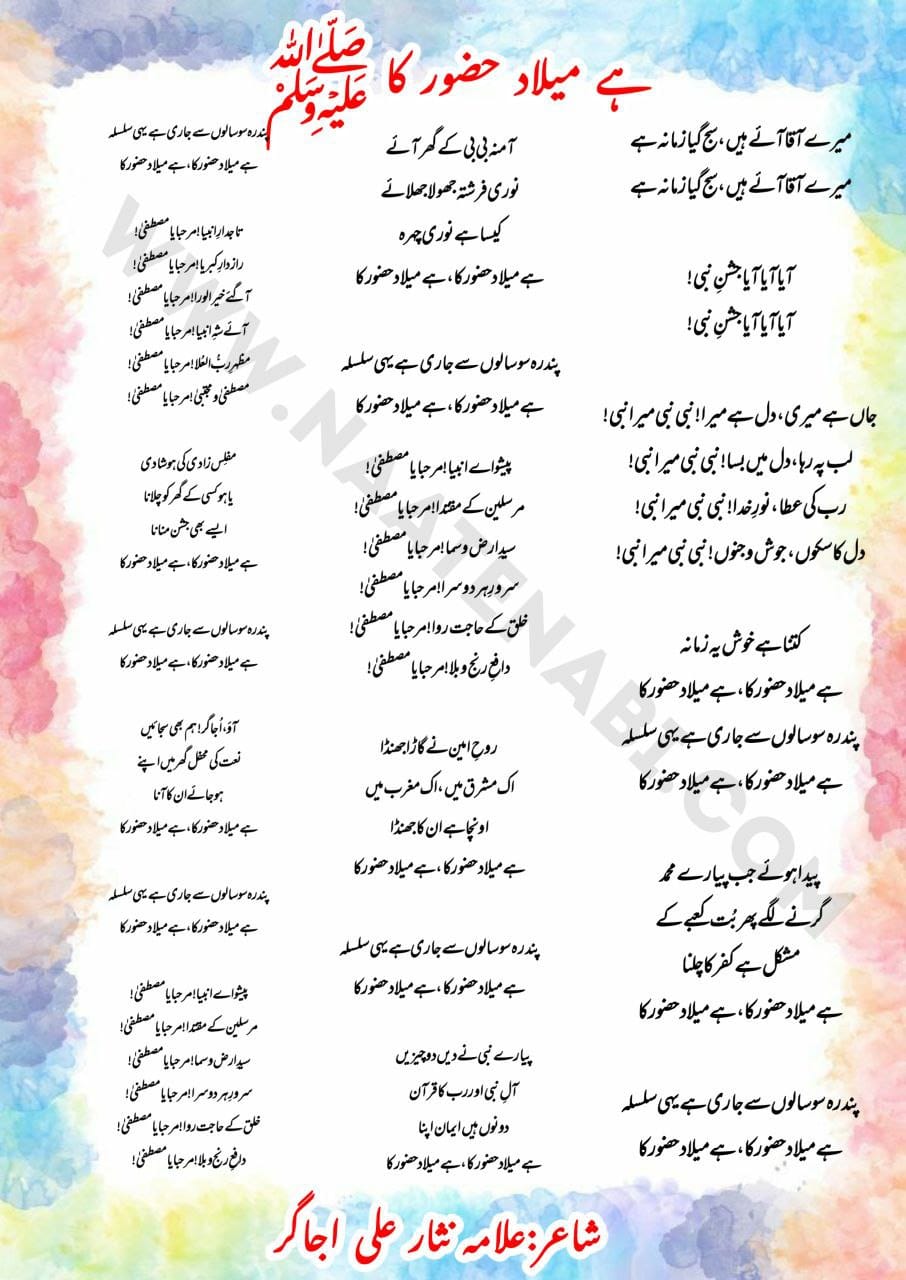 ہے میلاد حضور کا ﷺ
میرے آقا آئے ہیں، سج گیا زمانہ ہے
میرے آقا آئے ہیں، سج گیا زمانہ ہے
آیا آیا آیا جشنِ نبی!
آیا آیا آیا جشنِ نبی!
جاں ہے میری، دل ہے میرا! نبی نبی میرا نبی!
لب پہ رہا، دل میں بسا! نبی نبی میرا نبی!
رب کی عطا، نورِ خدا! نبی نبی میرا نبی!
دل کا سکوں، جوش و جنوں! نبی نبی میرا نبی!
کتنا ہے خوش یہ زمانہ
ہے میلاد حضور کا، ہے میلاد حضور کا
پندرہ سو سالوں سے جاری ہے یہی سلسلہ
ہے میلاد حضور کا، ہے میلاد حضور کا
پیدا ہوئے جب پیارے محمد
گرنے لگے پھر بُت کعبے کے
مشکل ہے کفر کا چلنا
ہے میلاد حضور کا، ہے میلاد حضور کا
پندرہ سو سالوں سے جاری ہے یہی سلسلہ
ہے میلاد حضور کا، ہے میلاد حضور کا
آمنہ بی بی کے گھر آئے
نوری فرشتہ جھولا جھلائے
کیسا ہے نوری چہرہ
ہے میلاد حضور کا، ہے میلاد حضور کا
پندرہ سو سالوں سے جاری ہے یہی سلسلہ
ہے میلاد حضور کا، ہے میلاد حضور کا
پیشوائے انبیا! مرحبا یا مصطفیٰ!
مرسلین کے مقتدا! مرحبا یا مصطفیٰ!
سیدِ ارض و سما! مرحبا یا مصطفیٰ!
سرورِ ہر دوسرا! مرحبا یا مصطفیٰ!
خلق کے حاجت روا! مرحبا یا مصطفیٰ!
دافعِ رنج و بلا! مرحبا یا مصطفیٰ!
روحِ امین نے گاڑا جھنڈا
اک مشرق میں، اک مغرب میں
اونچا ہے ان کا جھنڈا
ہے میلاد حضور کا، ہے میلاد حضور کا
پندرہ سو سالوں سے جاری ہے یہی سلسلہ
ہے میلاد حضور کا، ہے میلاد حضور کا
پیارے نبی نے دیں دو چیزیں
آلِ نبی اور رب کا قرآن
دونوں ہیں ایمان اپنا
ہے میلاد حضور کا، ہے میلاد حضور کا
پندرہ سو سالوں سے جاری ہے یہی سلسلہ
ہے میلاد حضور کا، ہے میلاد حضور کا
تاجدارِ انبیا! مرحبا یا مصطفیٰ!
رازدارِ کبریا! مرحبا یا مصطفیٰ!
آگئے خیر الورا! مرحبا یا مصطفیٰ!
آئے شہِ انبیا! مرحبا یا مصطفیٰ!
مظہرِ ربُّ العُلا! مرحبا یا مصطفیٰ!
مصطفیٰ و مجتبیٰ! مرحبا یا مصطفیٰ!
مفلِس زادی کی ہو شادی
یا ہو کسی کے گھر کو چلانا
ایسے بھی جشن منانا
ہے میلاد حضور کا، ہے میلاد حضور کا
پندرہ سو سالوں سے جاری ہے یہی سلسلہ
ہے میلاد حضور کا، ہے میلاد حضور کا
آؤ، اُجاگر! ہم بھی سجائیں
نعت کی محفل گھر میں اپنے
ہو جائے ان کا آنا
ہے میلاد حضور کا، ہے میلاد حضور کا
پندرہ سو سالوں سے جاری ہے یہی سلسلہ
ہے میلاد حضور کا، ہے میلاد حضور کا
پیشوائے انبیا! مرحبا یا مصطفیٰ!
مرسلین کے مقتدا! مرحبا یا مصطفیٰ!
سیدِ ارض و سما! مرحبا یا مصطفیٰ!
سرورِ ہر دوسرا! مرحبا یا مصطفیٰ!
خلق کے حاجت روا! مرحبا یا مصطفیٰ!
دافعِ رنج و بلا! مرحبا یا مصطفیٰ!
شاعر: علامہ نثار علی اجاگر
WWW.NAATENABI.COM